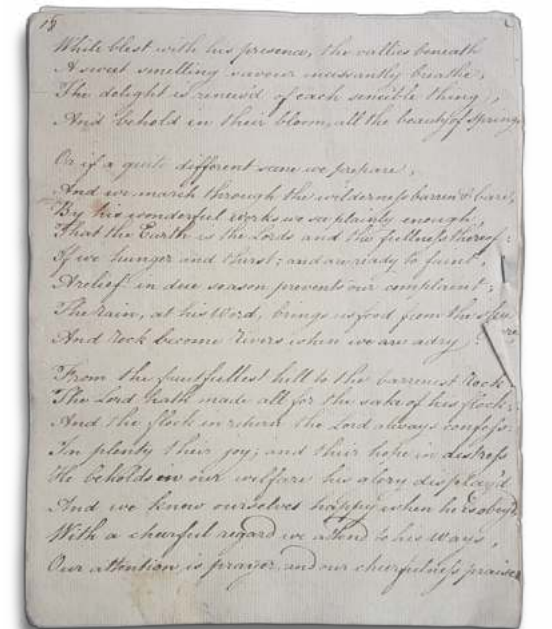 18
While blest with his presence, the vallies beneath
A sweet smelling savour incessantly breathe,
The delight is renew'd of each sencible thing,
And behold in their bloom, all the beauty of Spring.
Or if a quite different scene we prepare,
And we march through the wilderness barren & bare,
By his wonderful works we see plainly enough,
That the Earth is the Lords and the fullness thereof:
If we hunger and thirst; and are ready to faint,
A relief in due season prevents our complaint;
The rain, at his Word, brings us food from the
And Rock become Rivers when we are adry
From the fruitfullest hill to the barrenest Rock
The Lord hath made all for the sake of his flock;
And the flock in return the Lord always confess
In plenty their joy; and their hope in distress
He beholds in our welfare his glory display'd
And we know ourselves happy when he is obey'd
With a chearful regard we attend to his ways,
Our attention is prayer and our chearfulness praise